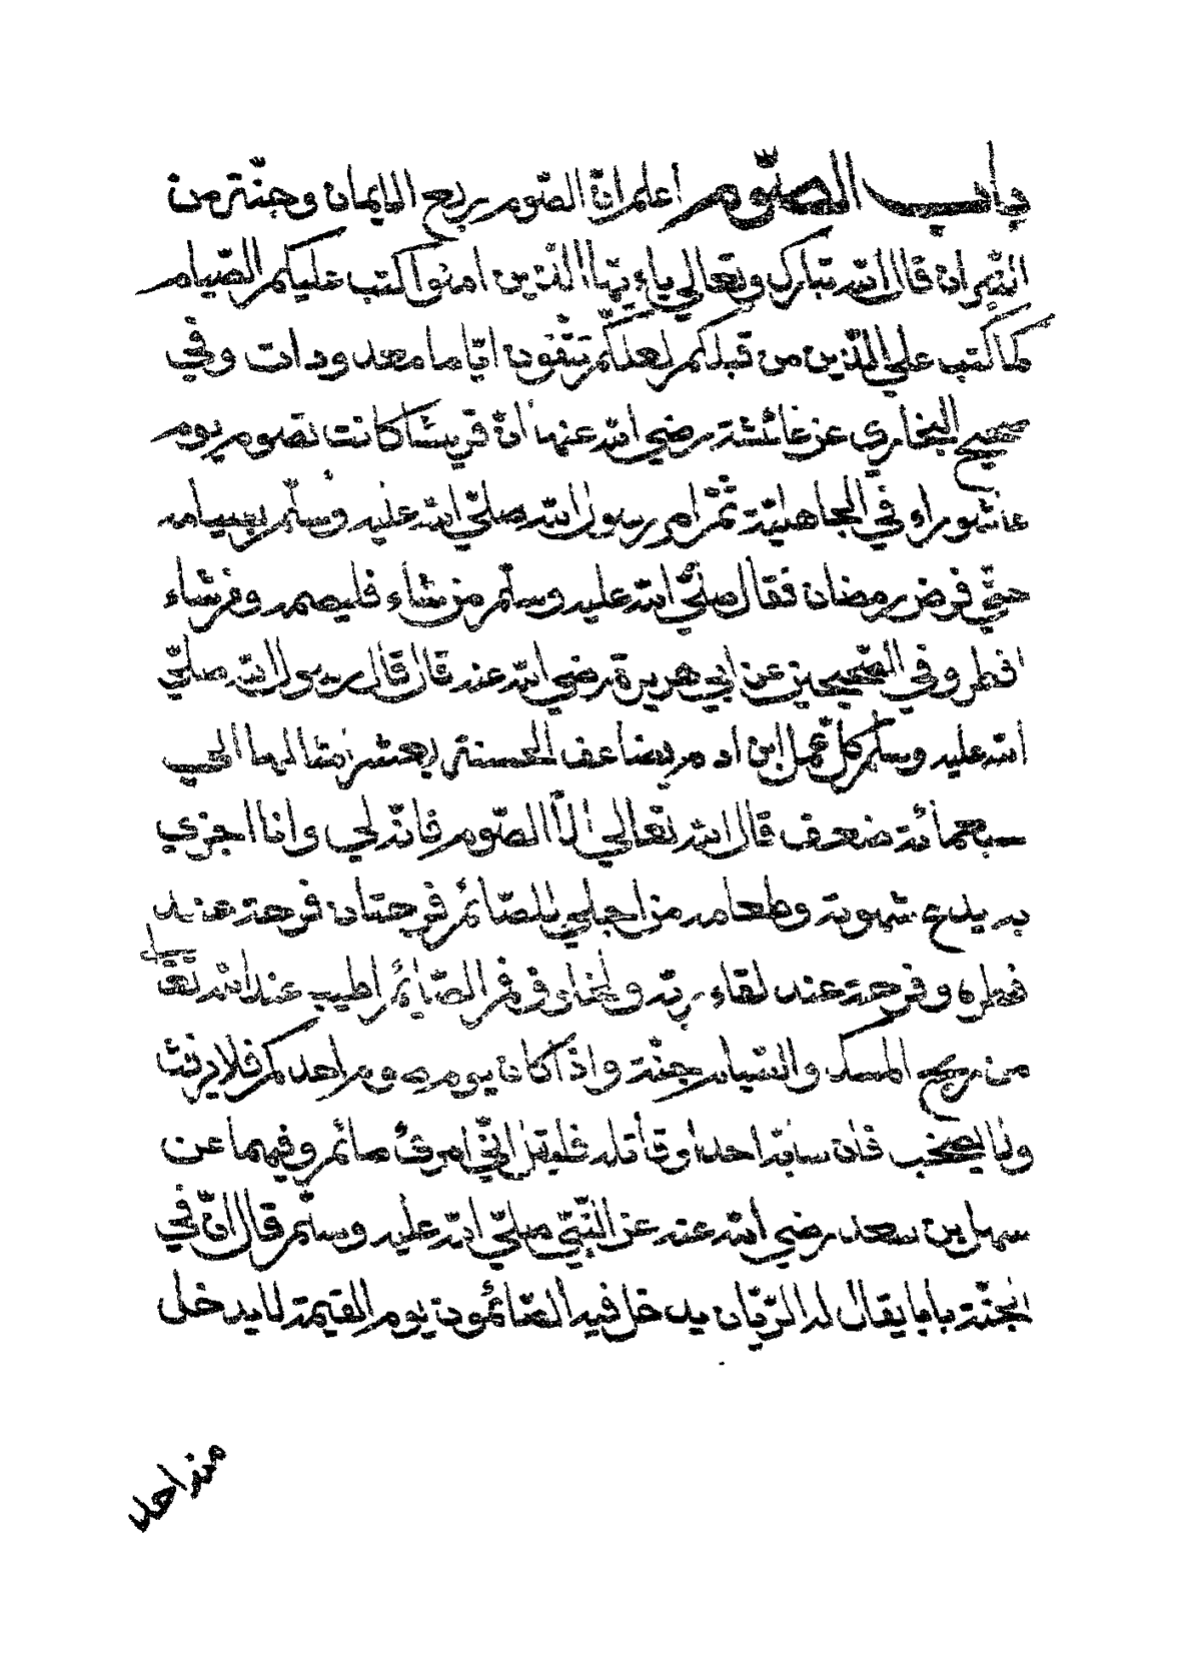 باب الصّوم اعلم انّ الصّوم ربع الايمان وجنّة من
النّيران قال الله تبارك وتعالى ياءيّها الذين امنوا كتب عليكم الصّيام
كما كتب علي الذّين من قبلكم لعلّكم تتّقون ايّاما معدودات وفي
صحيح البخاري عن عائشة رضي الله عنها انّ قريشا كانت تصوم يوم
عاشوراء في الجاهليّة ثمّ امر رسول الله صلّي الله عليه وسلّم بصيامه
حتّي فرض رمضان فقال صلّي الله عليه وسلّم من شاء فليصمه ومن شاء
افطر وفي الصّحيحين عن ابي هريرة رضي الله عنه قال قال رسول الله صلّي
الله عليه وسلّم كلّ عمل ابن ادم يضاعف الحسنة بعشر امثالها الي
سبعمائة ضعف قال الله تعالي الّا الصّوم فانّه لي وانا اجزي
به يدع شهوته وطعامه من اجلي للصّائم فرحتان فرحة عند
فطره وفرحة عند لقاء ربّه ولخلوف فم الصّائم اطيب عند الله تعالي
من ريح المسك والصّيام جنّة واذا كان يوم صوم احدكم فلا يرفث
ولا يصخب فان سابّه احد او قاتله فليقل انّي امرئ صائم وفيهما عن
سهل بن سعد رضي الله عنه عن النّبيّ صلّي الله عليه وسلّم قال انّ في
الجنّة بابا يقال له الرّيّان يدخل فيه الصّائمون يوم القيمة لا يدخل
منه احد